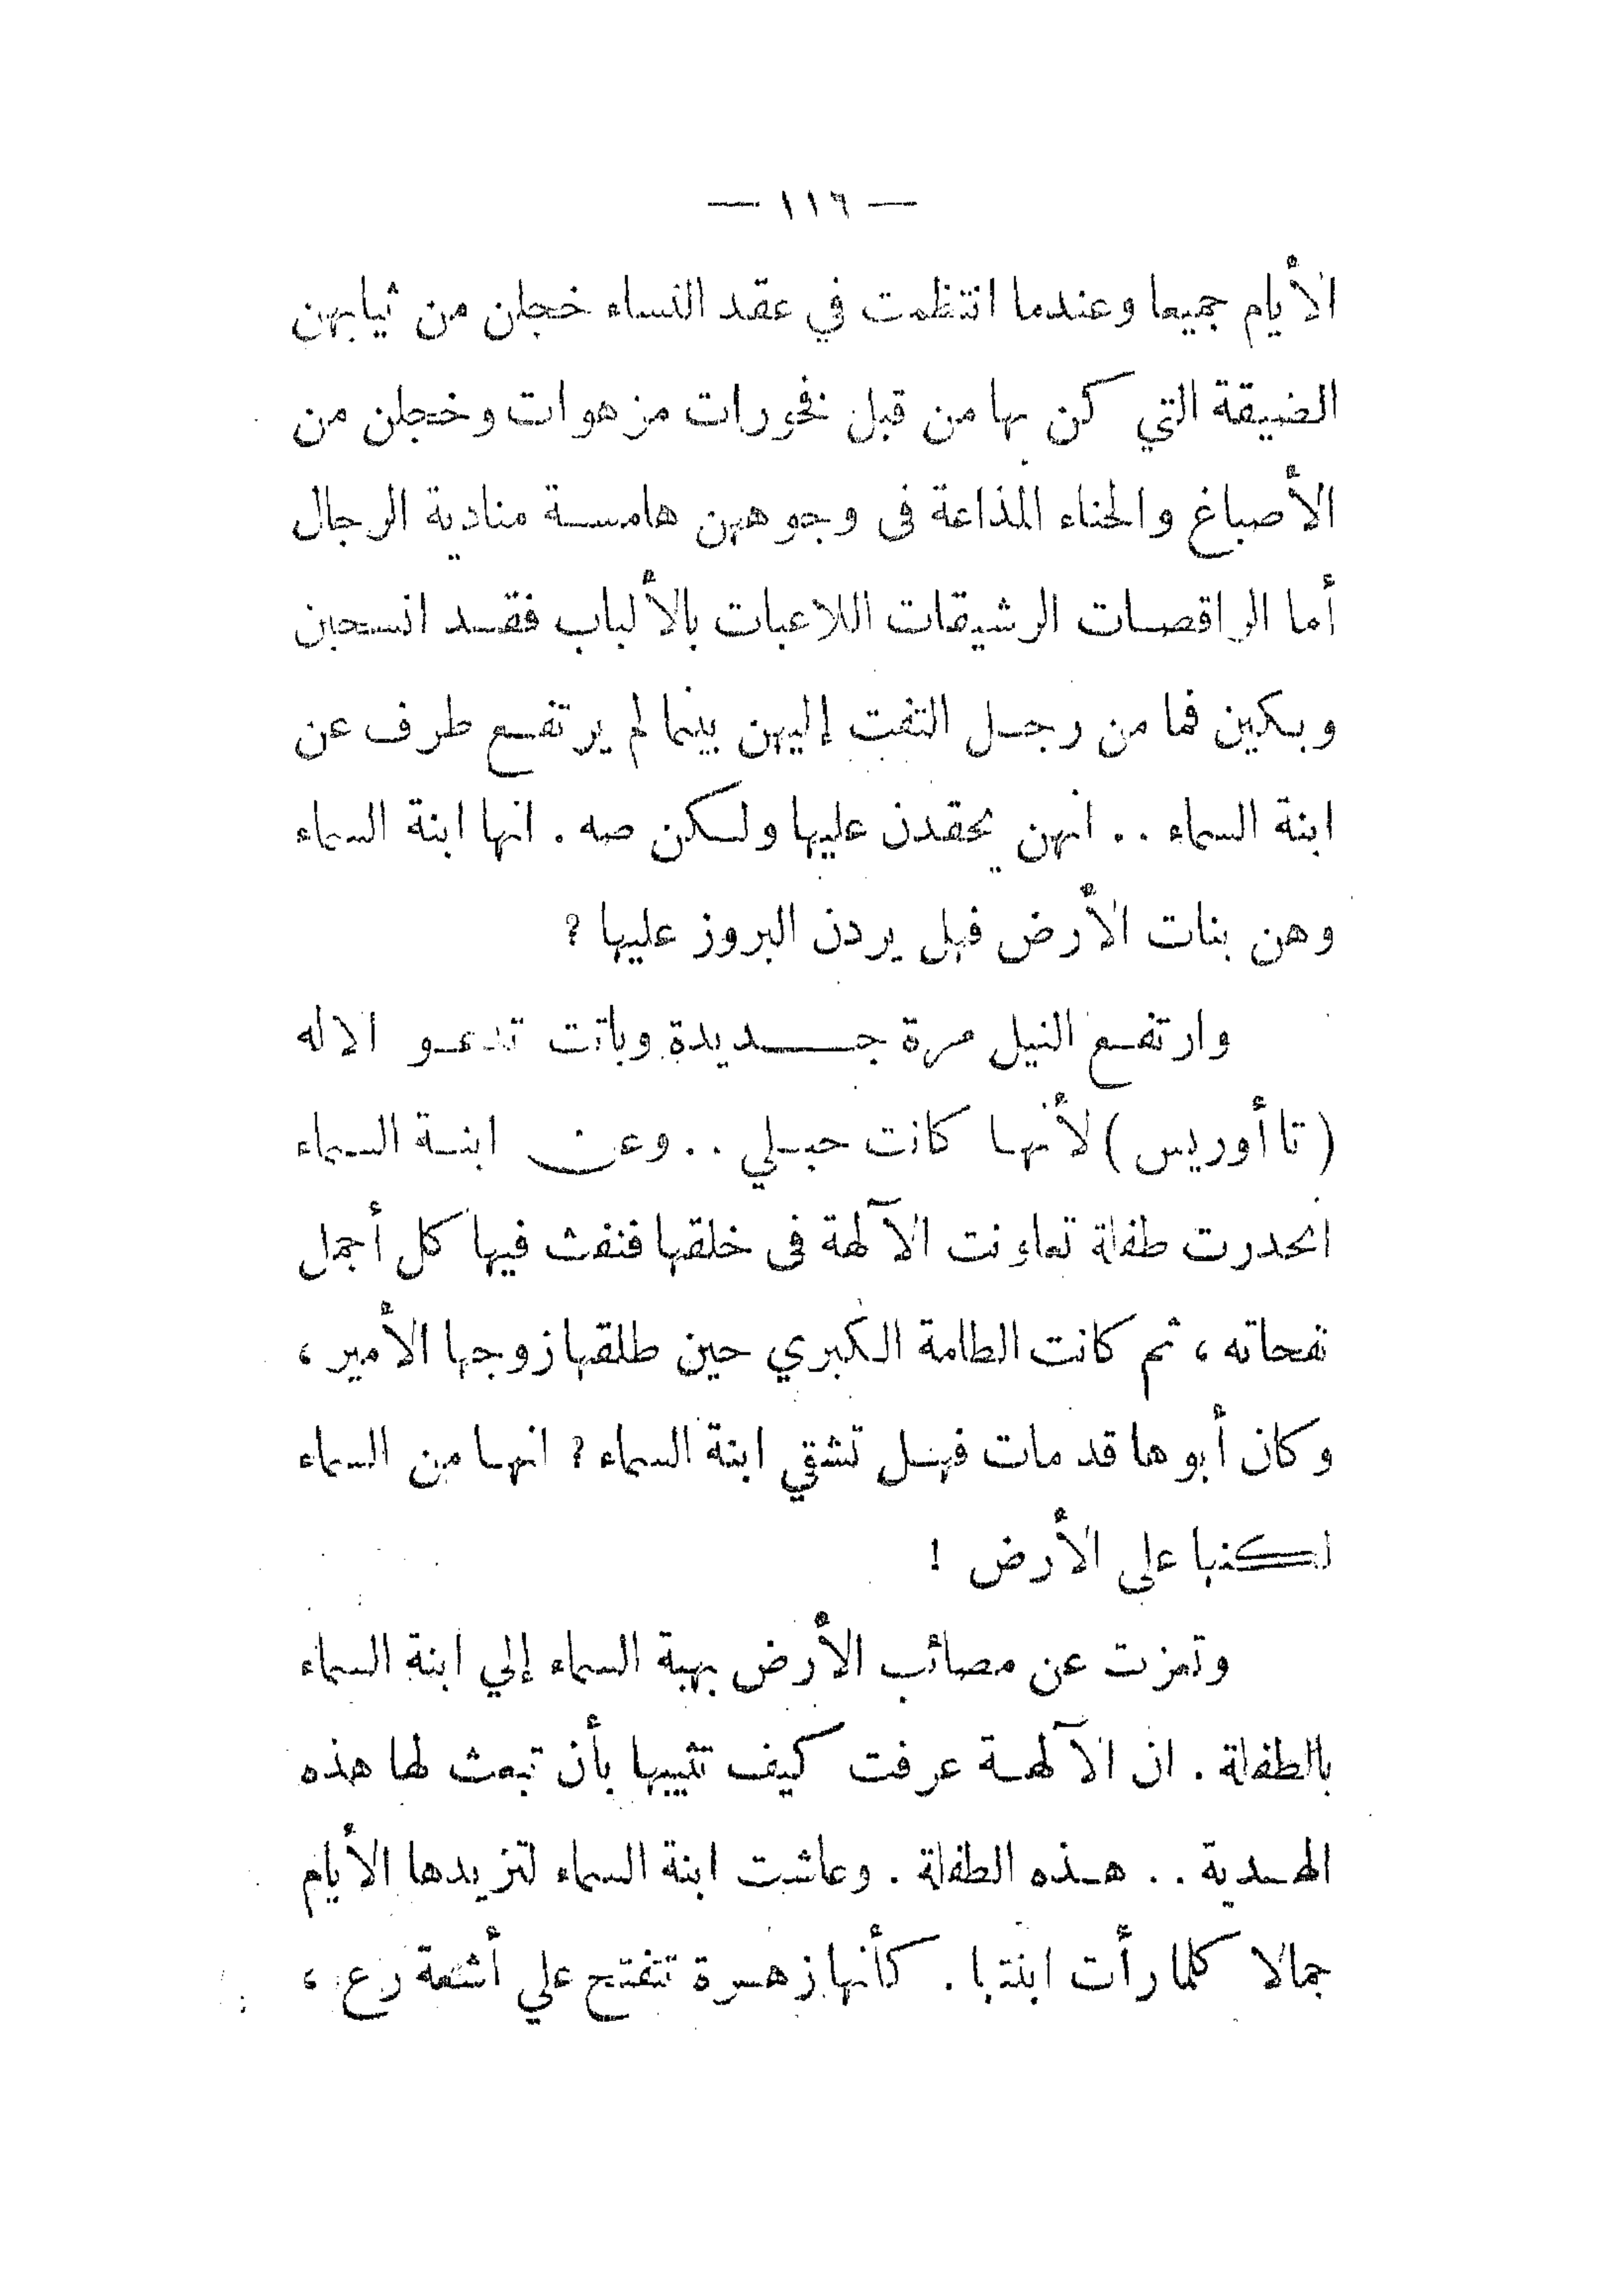 — ١١٦ —
الأيام جميعا وعندما انتظمت في عقد النساء خجلن من ثيابهن
الضيقة التي كن بها من قبل فخورات مزهوات وخجلن من
الأصباغ والحناء المذاعة فى وجوههن هامسة منادية الرجال
أما الراقصات الرشيقات اللاعبات بالألباب فقد انسحبن
وبكين فما من رجل التفت إليهن بينما لم يرتفع طرف عن
ابنة السماء . . انهن يحقدن عليها ولكن صه . انها ابنة السماء
وهن بنات الأرض فهل يردن البروز عليها ؟
وارتفع النيل مرة جديدة وباتت تدعو الاله
( تاأوريس ) لأنها كانت حبلي . . وعن ابنة السماء
انحدرت طفلة تعاونت الآلهة فى خلقها فنفث فيها كل أجمل
نفحاته ، ثم كانت الطامة الكبري حين طلقها زوجها الأمير ،
وكان أبوها قد مات فهل تشقي ابنة السماء ؟ انها من السماء
لكنها على الأرض !
وتعزت عن مصائب الأرض بهبة السماء إلي ابنة السماء
بالطفلة . ان الآلهة عرفت كيف تثيبها بأن تبعث لها هذه
الهدية . . هذه الطفلة . وعاشت ابنة السماء لتزيدها الأيام
جمالا كلما رأت ابنتها . كأنها زهرة تتفتح علي أشعة رع ،